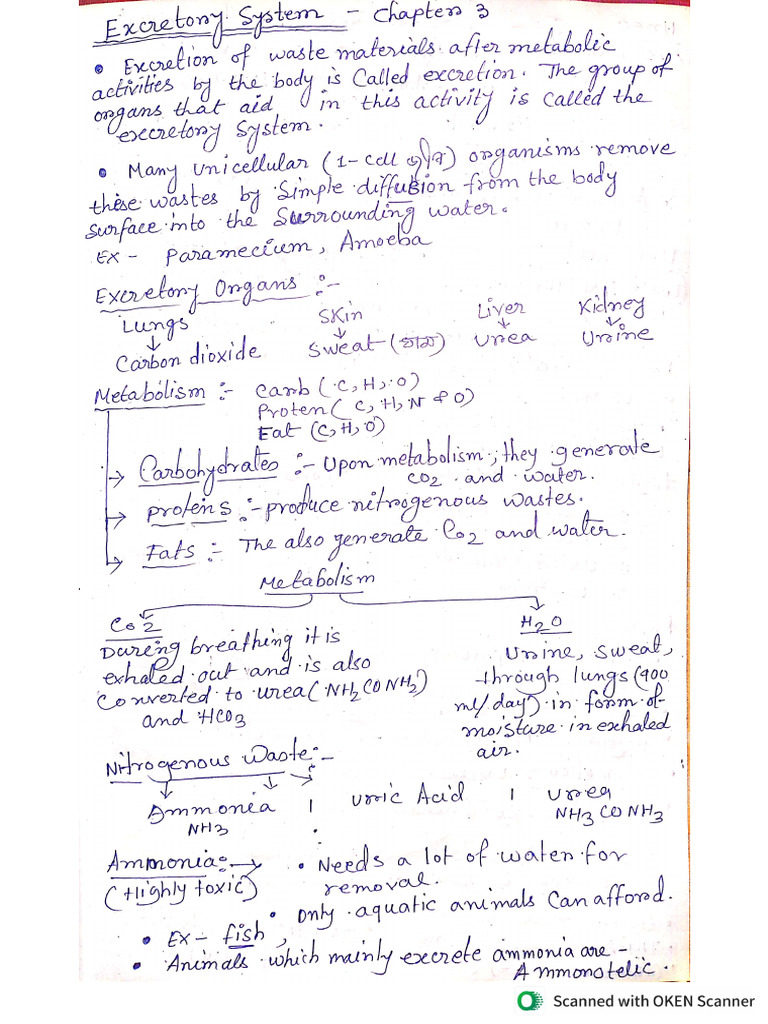 Excretory System - Chapter 3
• Excretion of waste materials after metabolic
activities by the body is Called excretion. The group of
organs that aid in this activity is called the
excretory System.
• Many Unicellular (1-cell) organisms remove
these wastes by Simple diffusion from the body
surface into the Surrounding water.
Ex - Paramecium, Amoeba
Excretory Organs :-
Lungs Skin Liver Kidney
↓ ↓ ↓ ↓
Carbon dioxide Sweat (ঘাম) Urea Urine
Metabolism :- Carb (C, H, O)
Proten (C, H, N & O)
Fat (C, H, O)
→ Carbohydrates :- Upon metabolism, they generate
CO2 and water.
→ Protens :- produce nitrogenous wastes.
→ Fats :- The also generate Co2 and water.
Metabolism
Co2
During breathing it is
exhaled out and is also
Converted to urea (NH2CONH2)
and HCO3
H2O
Urine, sweat,
through lungs (900
ml/day) in form of
moisture in exhaled
air.
Nitrogenous Waste :-
Ammonia | Uric Acid | Urea
NH3 NH3 CO NH3
Ammonia :- → • Needs a lot of water for
(Highly toxic) removal.
• Only aquatic animals Can afford.
• Ex - fish,
• Animals which mainly excrete ammonia are -
Ammonotelic.
Scanned with OKEN Scanner